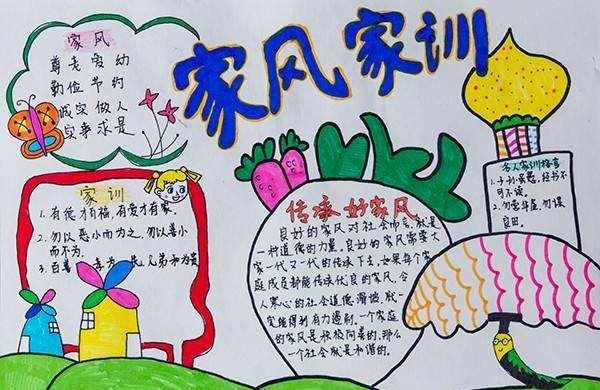 家风家训
家风
尊老爱幼
勤俭节约
诚实做人
实事求是
家训
1.有德才有福，有爱才有家。
2.勿以恶小而为之，勿以善小
而不为。
3.百善 孝为先，兄弟和为贵
传承好家风
良好的家风对社会而言，就是
一种道德的力量。良好的家风需要大
家一代又一代的传承下去，如果每个家
庭成员都能传承优良的家风，令
人寒心的社会道德滑坡，就一
定能得到有力遏制。一个家庭
的家风是积极向善的，那么
一个社会就是和谐的。
名人家训格言
1.子孙虽愚，经书不
可不读。
2.勿营华屋，勿谋
良田。